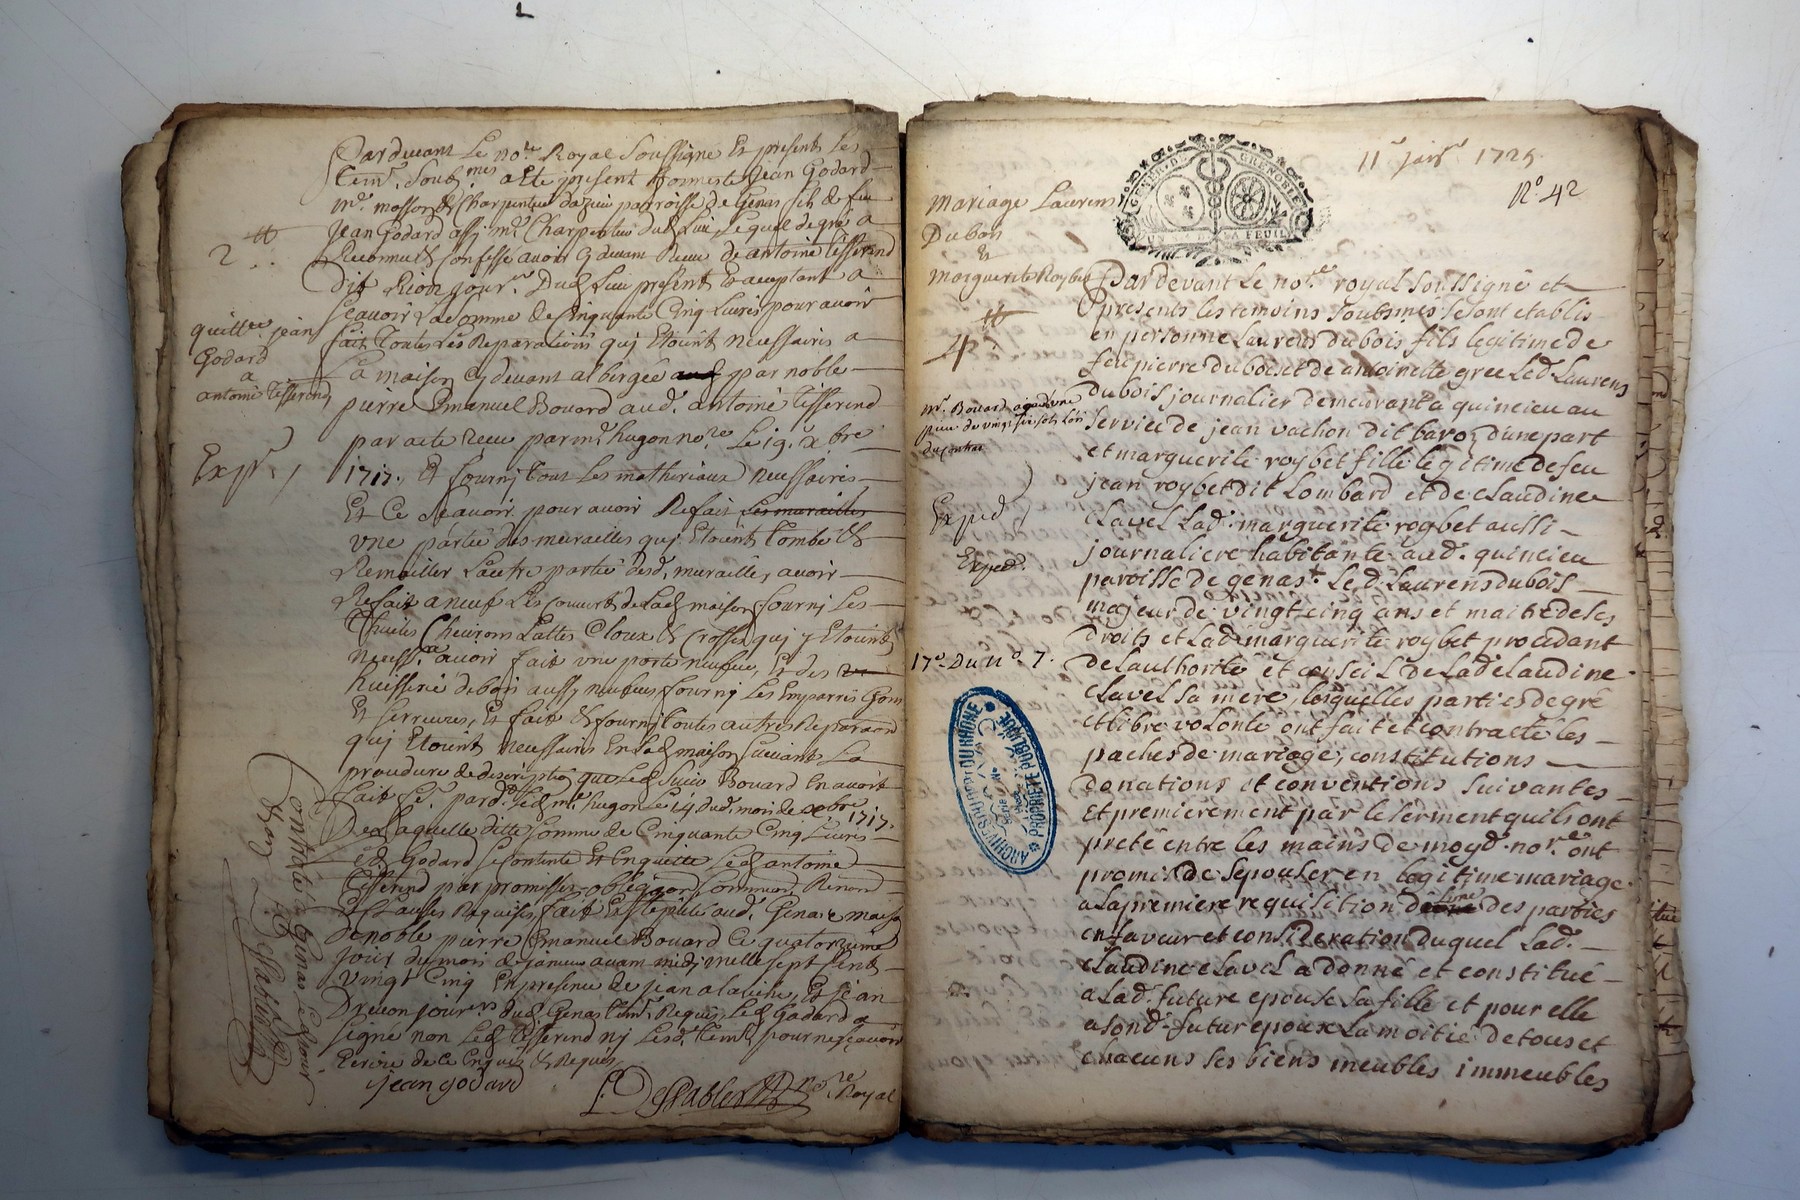 Pardevant Le no.re Royal Soussigné Et presents les
tem. Soub.mes a Ete present honneste Jean Godard
m.e masson & Charpentier da zuu parroisse de Genas fils de feu
Jean Godard assy m.e Charpentier dud. Lieu Lequel de gré a
Reconnu & Confessé avoir Cy devant Receu de antoine tisserend
dit Rion jour.r Dud. Lieu present Et acceptant a
sçavoir La Somme de Cinquante Cinq Livres pour avoir
fait Toutes Les Reparations quj Etoint neussairis a
La maison Cy devant albergée par noble
pierre Emanuel Bouard aud. antoine tisserend
par acte Receu par m.e hugon no.re Le 19. x.bre
1717. Et fournj tous Les matheriaux neussaires
Et Ce sçavoir pour avoir Refait Les murailles
une partie des murailles quj Etoint tombé &
Remailler Lautre partie desd. murailles, avoir
Refait aneuf Les couverts de Lad. maison fournj Les
Thuiles Chevrons Lattes Cloux & Crosses quj y Etoint
neuss. avoir fait une porte neufve, Et des
huisserie de bois aussy neufves fournj Les Emparres Gons
Et serreures, Et fait & fournj toutes autres Reparaon
quj Etoint neussairis En Lad. maison suivant La
proudure de descriptio que Led. Sieur Bouard En avoit
fait fe. pard. Led. m.e hugon Le 19 dud. mois de x.bre 1717.
De Laquelle ditte Somme de Cinquante Cinq Livres
Led. Godard se Contente Et En quitte Led. antoine
tisserend par promesses obligaon soumions Renons
& Clauses Requises fait Et stipulé aud. Genas maison
de noble pierre Emanuel Bouard Ce quatorzieme
jour du mois de janvier avant midj mille sept Cent
vingt Cinq En presence de jean Et Jean
Drevon jour.rs dud. Genas tem. Requis, Led. Godard a
signé non Led. tisserend nj Lesd. tem. pour ne sçavoir
Ecrire de Ce Enquis & Requis
jean godard
Despables no.re Royal
2 ..
quitt.ce jean
Godard
a
antoine tisserend
Exp.
Controllé a Genas Le
Despables
11.e janv.r 1725
N.o 42
GNER.DE GRENOBLE
UN S. LA FEUIL
mariage Laurens
Dubois
&
marguerite Roybet
4
m.r Bouard a
Exped
Exped.
17.e Du n.o 7.
ARCHIVES DU DÉPT DU RHÔNE
PROPRIÉTÉ PUBLIQUE
Par devant Le no.re royal soussigné et
presents les temoins soubsmis se sont etablis
en personne Laurens dubois fils legitime de
feu pierre dubois et de antoinette gree Led. Laurens
dubois journalier demeurant a quincieu au
service de jean vachon dit baroz d'une part
et marguerite roybet fille legitime de feu
jean roybet dit Lombard et de claudine
clavel Lad. marguerite roybet aussi
journaliere habitante aud. quincieu
paroisse de genas + Led. Laurens dubois
majeur de vingt cinq ans et maitre de ses
droits et Lad. marguerite roybet procedant
de lauthorité et conseil de Lad. claudine
clavel sa mere, lesquelles parties de gré
et libre volonté ont fait et contracté les
paches de mariage, constitutions
donations et conventions suivantes
et premierement par le serment quils ont
preté entre les mains de moyd. no.re ont
promis de sepouser en legitime mariage
a la premiere requisition de Lune des parties
en faveur et consideration duquel Lad.
claudine clavel a donné et constitué
a Lad. future epouse sa fille et pour elle
a sond. futur epoux La moitié de tous et
chacuns ses biens meubles immeubles